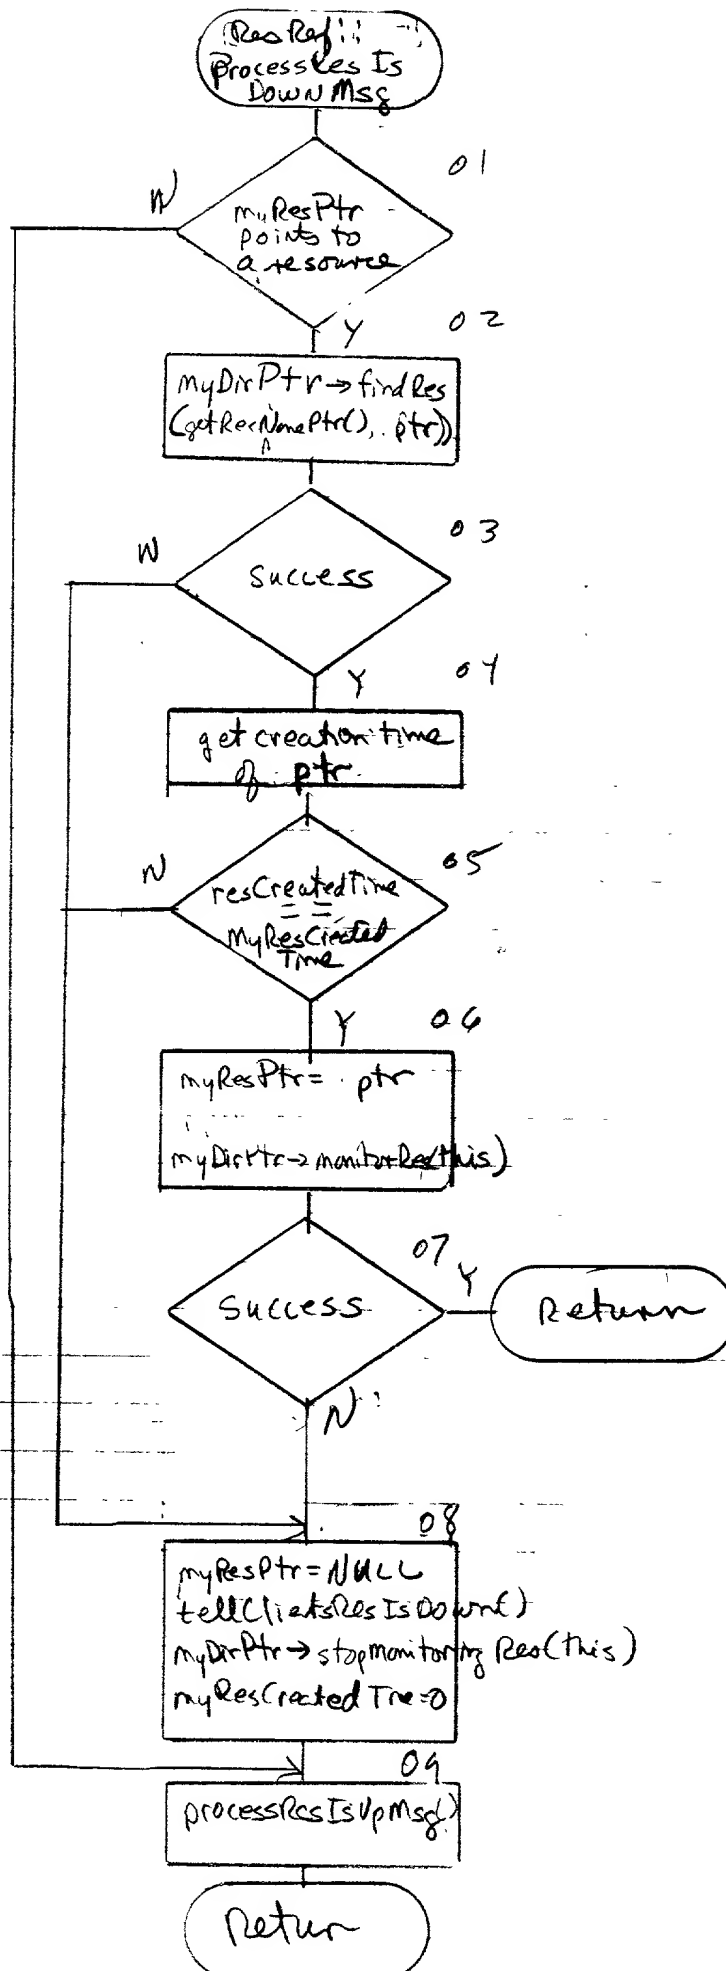 ResRef::
ProcessRes Is
DOWN Msg
01
N
myResPtr
points to
a resource
Y
02
myDirPtr→findRes
(getResNamePtr(), ptr))
03
N
Success
Y
04
get creation time
of ptr
05
N
resCreatedTime
==
MyResCreated
Time
Y
06
myResPtr = ptr
myDirPtr→monitorRes(this)
07
Y
Success
Return
N
08
myResPtr = NULL
tellClietsResIsDown()
myDirPtr→stopmonitoring Res(this)
myResCreated Tme=0
09
processResIsUpMsg()
Retur